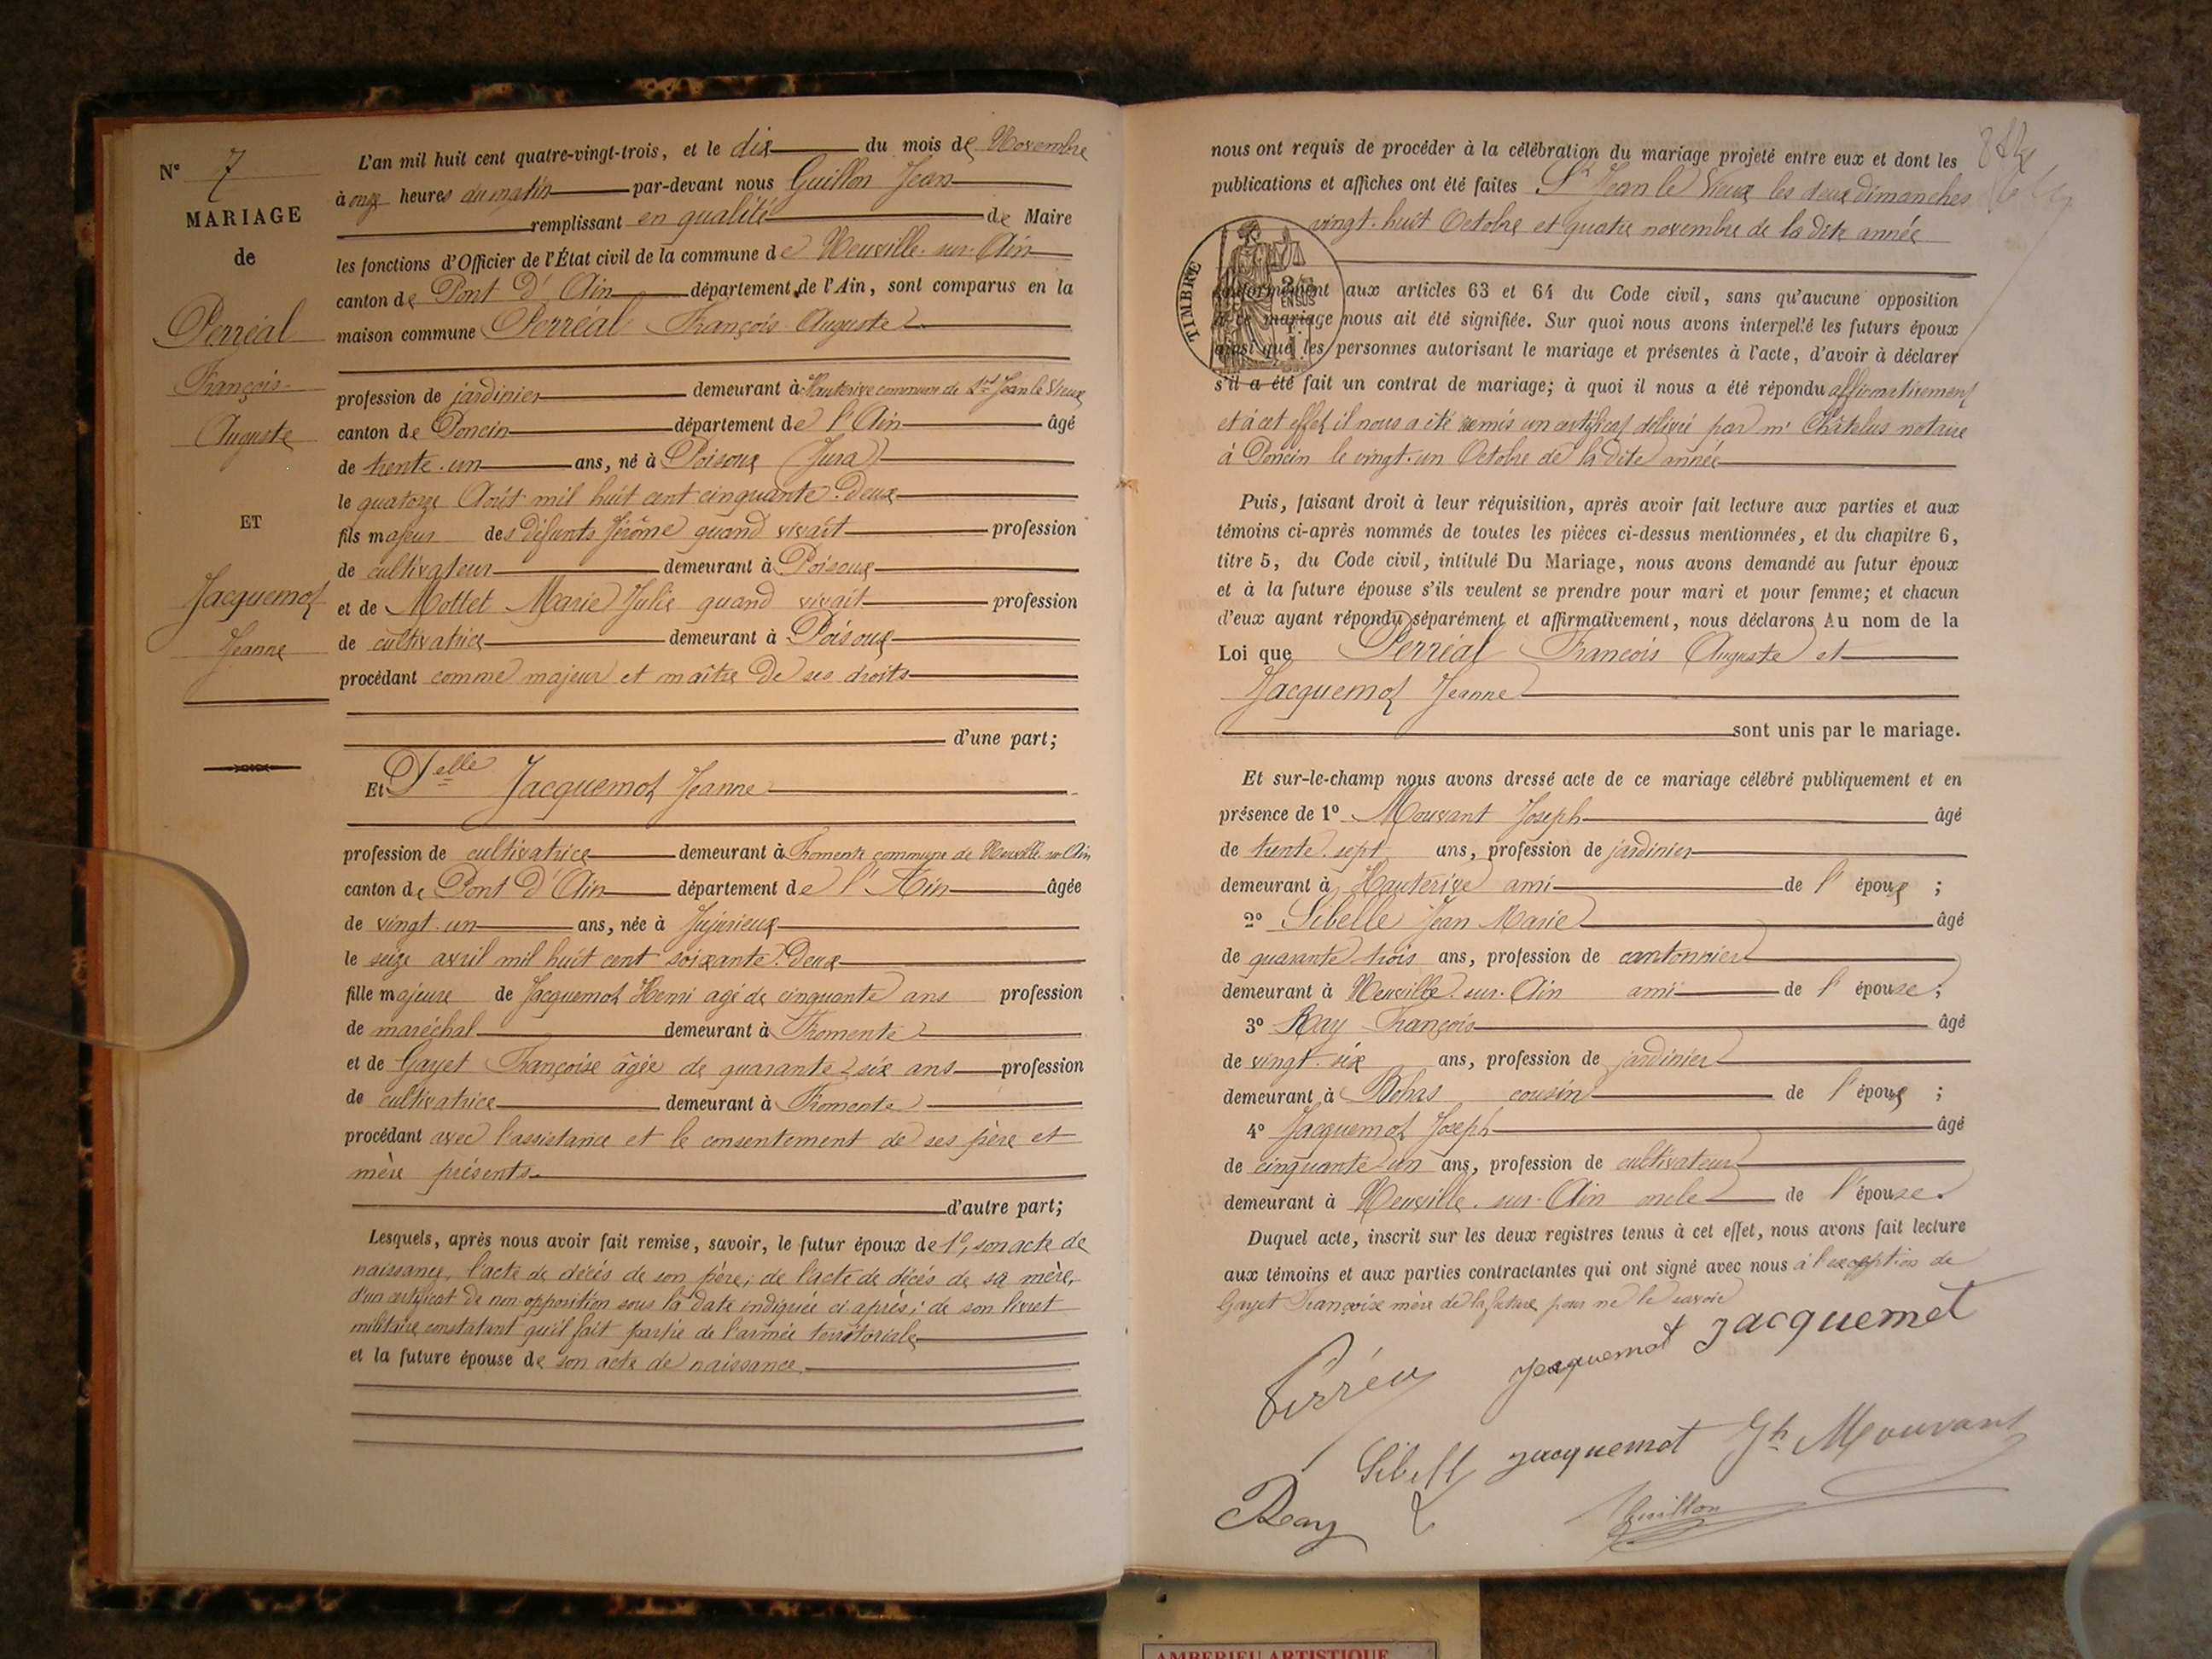 N° 7
MARIAGE
de
Perréal
François
Auguste
ET
Jacquemot
Jeanne
L'an mil huit cent quatre-vingt-trois, et le dix du mois de Novembre
à onze heures du matin par-devant nous Guillon Jean
remplissant en qualité de Maire
les fonctions d'Officier de l'État civil de la commune de Neuville-sur-Ain
canton de Pont d'Ain département de l'Ain, sont comparus en la
maison commune Perréal François Auguste
profession de jardinier demeurant à Hauterive commune de St Jean le Vieux
canton de Poncin département de l'Ain âgé
de trente-un ans, né à Poisoux (Jura)
le quatorze Août mil huit cent cinquante-deux
fils majeur des défunts Jérôme quand vivait profession
de cultivateur demeurant à Poisoux
et de Mottet Marie Julie quand vivait profession
de cultivatrice demeurant à Poisoux
procédant comme majeur et maître de ses droits
d'une part;
Et Delle Jacquemot Jeanne
profession de cultivatrice demeurant à Fromente commune de Neuville sur Ain
canton de Pont d'Ain département de l'Ain âgée
de vingt-un ans, née à Jujurieux
le seize avril mil huit cent soixante-deux
fille majeure de Jacquemot Henri agé de cinquante ans profession
de maréchal demeurant à Fromente
et de Gayet Françoise âgée de quarante-six ans profession
de cultivatrice demeurant à Fromente
procédant avec l'assistance et le consentement de ses père et
mère présents
d'autre part;
Lesquels, après nous avoir fait remise, savoir, le futur époux de 1°, son acte de
naissance, l'acte de décés de son père; de l'acte de décés de sa mère,
d'un certificat de non-opposition sous la date indiquée ci-après; de son livret
militaire constatant qu'il fait partie de l'armée territoriale
et la future épouse de son acte de naissance
nous ont requis de procéder à la célébration du mariage projeté entre eux et dont les
publications et affiches ont été faites St Jean le Vieux les deux dimanches
vingt-huit Octobre et quatre novembre de la dite année
TIMBRE
conformément aux articles 63 et 64 du Code civil, sans qu'aucune opposition
à ce mariage nous ait été signifiée. Sur quoi nous avons interpellé les futurs époux
ainsi que les personnes autorisant le mariage et présentes à l'acte, d'avoir à déclarer
s'il a été fait un contrat de mariage; à quoi il nous a été répondu affirmativement
et à cet effet il nous a été remis un certificat délivré par me Chatelus notaire
à Poncin le vingt-un Octobre de la dite année
Puis, faisant droit à leur réquisition, après avoir fait lecture aux parties et aux
témoins ci-après nommés de toutes les pièces ci-dessus mentionnées, et du chapitre 6,
titre 5, du Code civil, intitulé Du Mariage, nous avons demandé au futur époux
et à la future épouse s'ils veulent se prendre pour mari et pour femme; et chacun
d'eux ayant répondu séparément et affirmativement, nous déclarons Au nom de la
Loi que Perréal François Auguste et
Jacquemot Jeanne
sont unis par le mariage.
Et sur-le-champ nous avons dressé acte de ce mariage célébré publiquement et en
présence de 1° Mouvant Joseph âgé
de trente-sept ans, profession de jardinier
demeurant à Hauterive ami de l'époux ;
2° Sibelle Jean Marie âgé
de quarante-trois ans, profession de cantonnier
demeurant à Neuville-sur-Ain ami de l'épouse;
3° Ray François âgé
de vingt-six ans, profession de jardinier
demeurant à Bohas cousin de l'époux ;
4° Jacquemot Joseph âgé
de cinquante-un ans, profession de cultivateur
demeurant à Neuville-sur-Ain oncle de l'épouse.
Duquel acte, inscrit sur les deux registres tenus à cet effet, nous avons fait lecture
aux témoins et aux parties contractantes qui ont signé avec nous à l'exception de
Gayet Françoise mère de la future pour ne le savoir
jacquemot jacquemet
Sibell jacquemot Jh Mouvant
Ray Guillon
AMBERIEU ARTISTIQUE